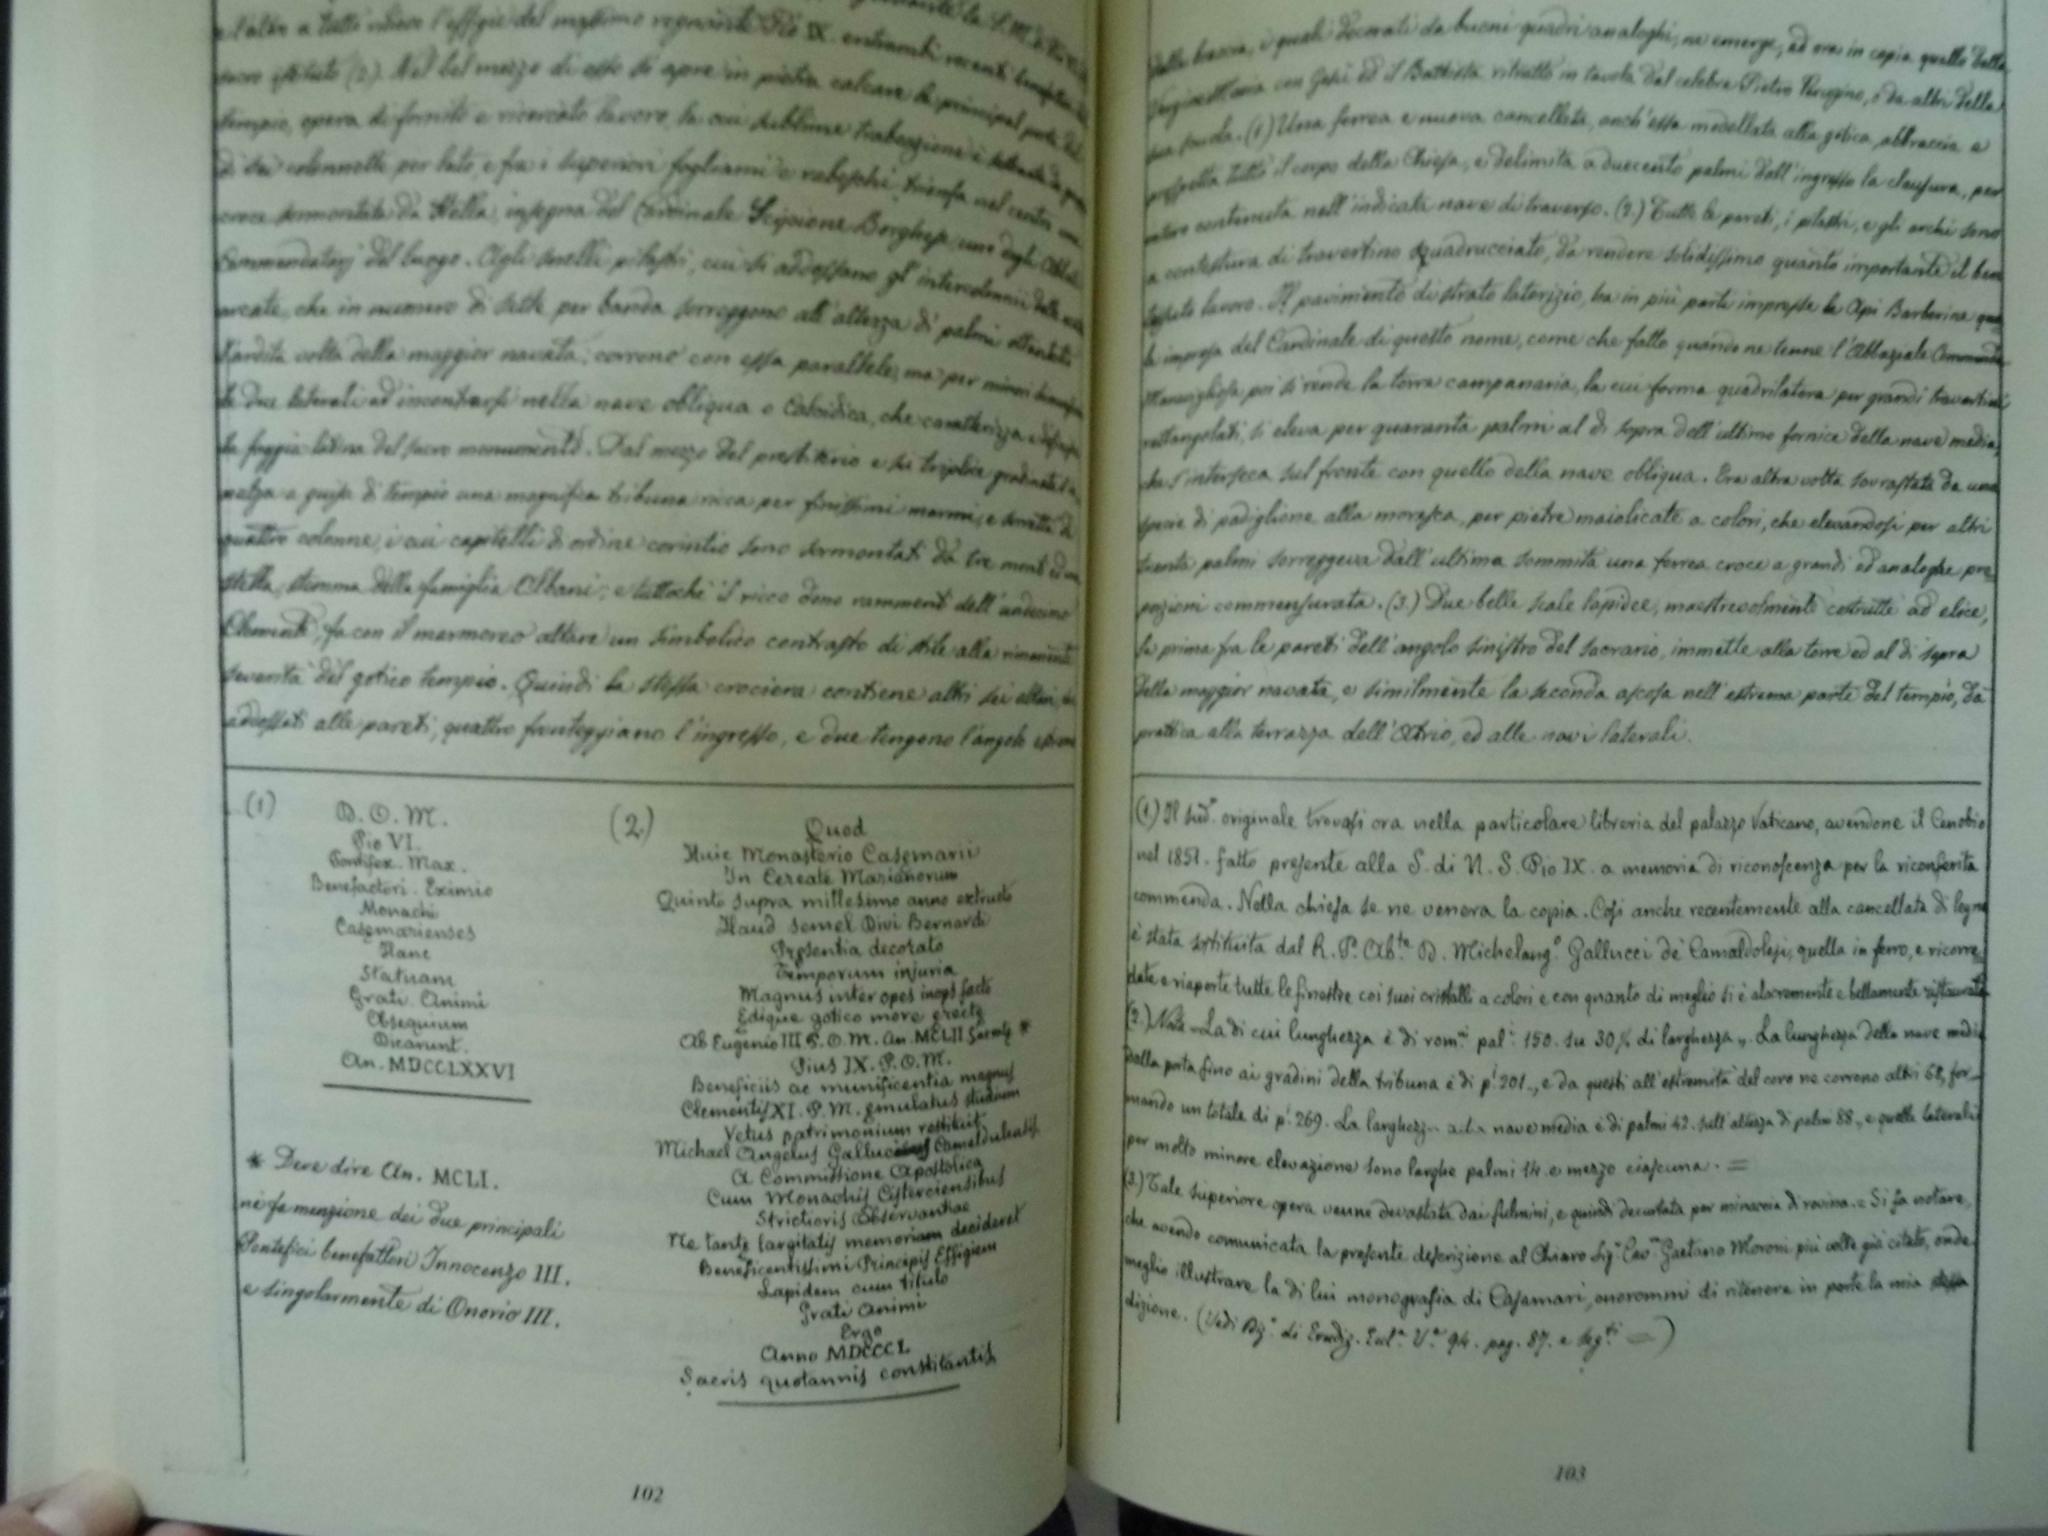 e l'altro a tutto rilievo l'effigie del massimo regnante Pio IX. entrambi recenti
sacro istituto (2). Nel bel mezzo di esso si apre in pietra calcare la principal porta del
tempio, opera di fornito e ricercato lavoro, la cui sublime trabeazione è
di sei colonnelle per lato, e fra i superiori fogliami e rabeschi trionfa nel centro una
croce sormontata da stella, insegna del Cardinale Scipione Borghese uno degli Abbati
Commendatarj del luogo. Agli snelli pilastri, cui si addossano gl'intercolonnii delle
arcate, che in numero di sette per banda sorreggono all'altezza di palmi ottantotto
l'ardita volta della maggior navata; corrono con essa parallele, ma per minori
le due laterali ad incontrarsi nella nave obliqua o Caloidica, che caratterizza e
la foggia latina del sacro monumento. Dal mezzo del presbiterio e su triplice gradinata
a guisa di tempio una magnifica tribuna ricca per finissimi marmi, e sorretta da
quattro colonne, i cui capitelli di ordine corintio sono sormontati da tre monti ed una
stella, stemma della famiglia Albani; e tuttochè il ricco dono rammenti dell'undecimo
Clemente, fa con il marmoreo altare un simbolico contrasto di stile alla rimanente
severità del gotico tempio. Quindi la stessa crociera contiene altri sei altari,
addossati alle pareti, quattro fronteggiano l'ingresso, e due tengono l'angolo estremo
(1)
D. O. M.
Pio VI.
Pontifex. Max.
Benefactori. Eximio
Monachi
Casæmarienses
Hanc
Statuam
Grati Animi
Obsequium
Dicarunt.
An. MDCCLXXVI
* Deve dire An. MCLI.
nè fa menzione dei due principali
Pontefici benefattori Innocenzo III.
e singolarmente di Onorio III.
(2.)
Quod
Huic Monasterio Casæmarii
In Cereate Marianorum
Quinto supra millesimo anno extructo
Haud semel Divi Bernardi
Præsentia decorato
Temporum injuria
Magnas inter opes inops facto
Ædique gotico more erectæ
Ab Eugenio III P. O. M. An. MCLII Sacratæ *
Pius IX. P. O. M.
Beneficiis ac munificentia magnus
Clementis XI. P. M. æmulatus studium
Vetus patrimonium restituit
Michael Angelus Gallucius Camaldulensis
A Commissione Apostolica
Cum Monachis Cisterciensibus
Strictioris Observantiae
Ne tantæ largitatis memoriam decideret
Beneficentissimi Principis Effigiem
Lapidem cum titulo
Grati Animi
Ergo
Anno MDCCCL
Sacris quotannis constitantis
102
delle braccia, i quali decorati da buoni quadri analoghi, ne emerge, ed ora in copia quello della
Vergine Maria con Gesù ed il Battista ritratto in tavola dal celebre Pietro Perugino, o da altri della
sua scuola. (1) Una ferrea e nuova cancellata, anch'essa modellata alla gotica, abbraccia e
prospetta tutto il corpo della Chiesa, e delimita a duecento palmi dall'ingresso la clausura, per
contenuta nell'indicata nave di traverso. (2.) Tutte le pareti, i pilastri, e gli archi sono
a contestura di travertino squadrucciato, da rendere solidissimo quanto importante il ben
tessuto lavoro. Il pavimento di strato laterizio, ha in più parte impresse le Api Barberine
la impresa del Cardinale di questo nome, come che fatto quando ne tenne l'Abbaziale Commenda.
Maravigliosa poi si rende la torre campanaria, la cui forma quadrilatera per grandi travertini
rettangolati, si eleva per quaranta palmi al di sopra dell'ultimo fornice della nave media,
che s'interseca sul fronte con quello della nave obliqua. Era altra volta sovrastata da una
specie di padiglione alla moresca, per pietre maiolicate a colori, che elevandosi per altri
trenta palmi sorreggeva dall'ultima sommità una ferrea croce a grandi ed analoghe pro-
porzioni commensurata. (3.) Due belle scale lapidee, maestrevolmente costrutte ad elice,
la prima fra le pareti dell'angolo sinistro del sacrario, immette alla torre ed al di sopra
della maggior navata, e similmente la seconda ascosa nell'estrema parte del tempio, dà
prattica alla terrazza dell'Atrio, ed alle navi laterali.
(1.) Il sud.º originale trovasi ora nella particolare libreria del palazzo Vaticano, avendone il Cenobio
nel 1851. fatto presente alla S. di N. S. Pio IX. a memoria di riconoscenza per la riconferita
commenda. Nella chiesa se ne venera la copia. Così anche recentemente alla cancellata di legno
è stata sostituita dal R. P. Ab.te D. Michelang.º Gallucci de' Camaldolesi, quella in ferro, e ricorre-
date e riaperte tutte le finestre coi suoi cristalli a colori e con quanto di meglio si è alacremente e bellamente ristaurato
(2.) Nota - La di cui lunghezza è di rom.ni pal.i 150. su 30½ di larghezza „. La lunghezza della nave media
dalla porta fino ai gradini della tribuna è di p.i 201., e da questi all'estremità del coro ne corrono altri 68, for-
mando un totale di p.i 269. La larghezza della nave media è di palmi 42. sull'altezza di palmi 88., e quelle laterali
per molto minore elevazione sono larghe palmi 14. e mezzo ciascuna. =
(3.) Tale superiore opera venne devastata dai fulmini, e quindi decurtata per minaccia di rovina. = Si fa notare,
che avendo comunicata la presente descrizione al Chiaro Sig.r Cav.re Gaetano Moroni più volte già citato, onde
meglio illustrare la di lui monografia di Casamari, onorommi di ritenere in parte la mia stessa
dizione. (Vedi Diz.º di Erudiz. Eccl.a V.e 94. pag. 87. e seg.ti =)
103